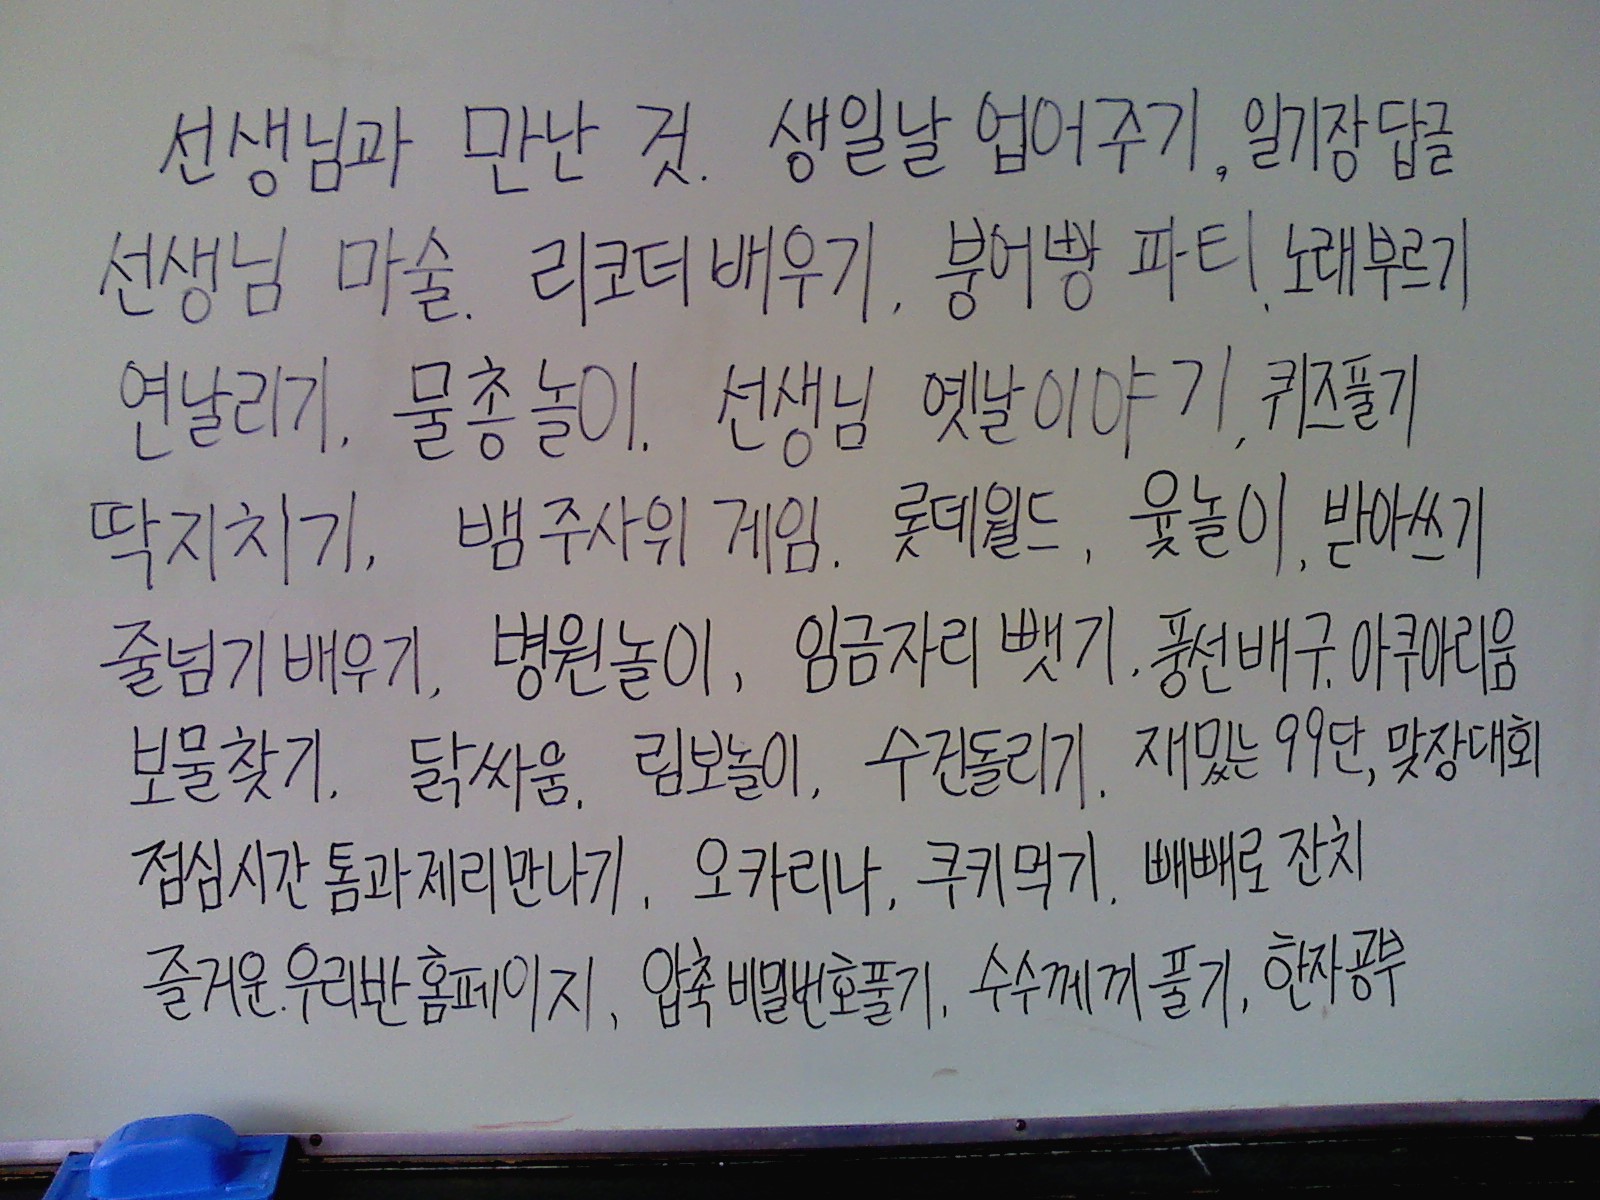 선생님과 만난 것. 생일날 업어주기, 일기장 답글
선생님 마술. 리코더 배우기, 붕어빵 파티, 노래부르기
연날리기, 물총놀이. 선생님 옛날이야기, 퀴즈풀기
딱지치기, 뱀 주사위 게임. 롯데월드, 윷놀이, 받아쓰기
줄넘기 배우기, 병원놀이, 임금자리 뺏기, 풍선배구, 아쿠아리움
보물찾기, 닭싸움, 림보놀이, 수건돌리기, 재밌는 99단, 맞장대회
점심시간 톰과제리만나기, 오카리나, 쿠키먹기, 빼빼로 잔치
즐거운.우리반 홈페이지, 압축 비밀번호풀기, 수수께끼 풀기, 한자공부